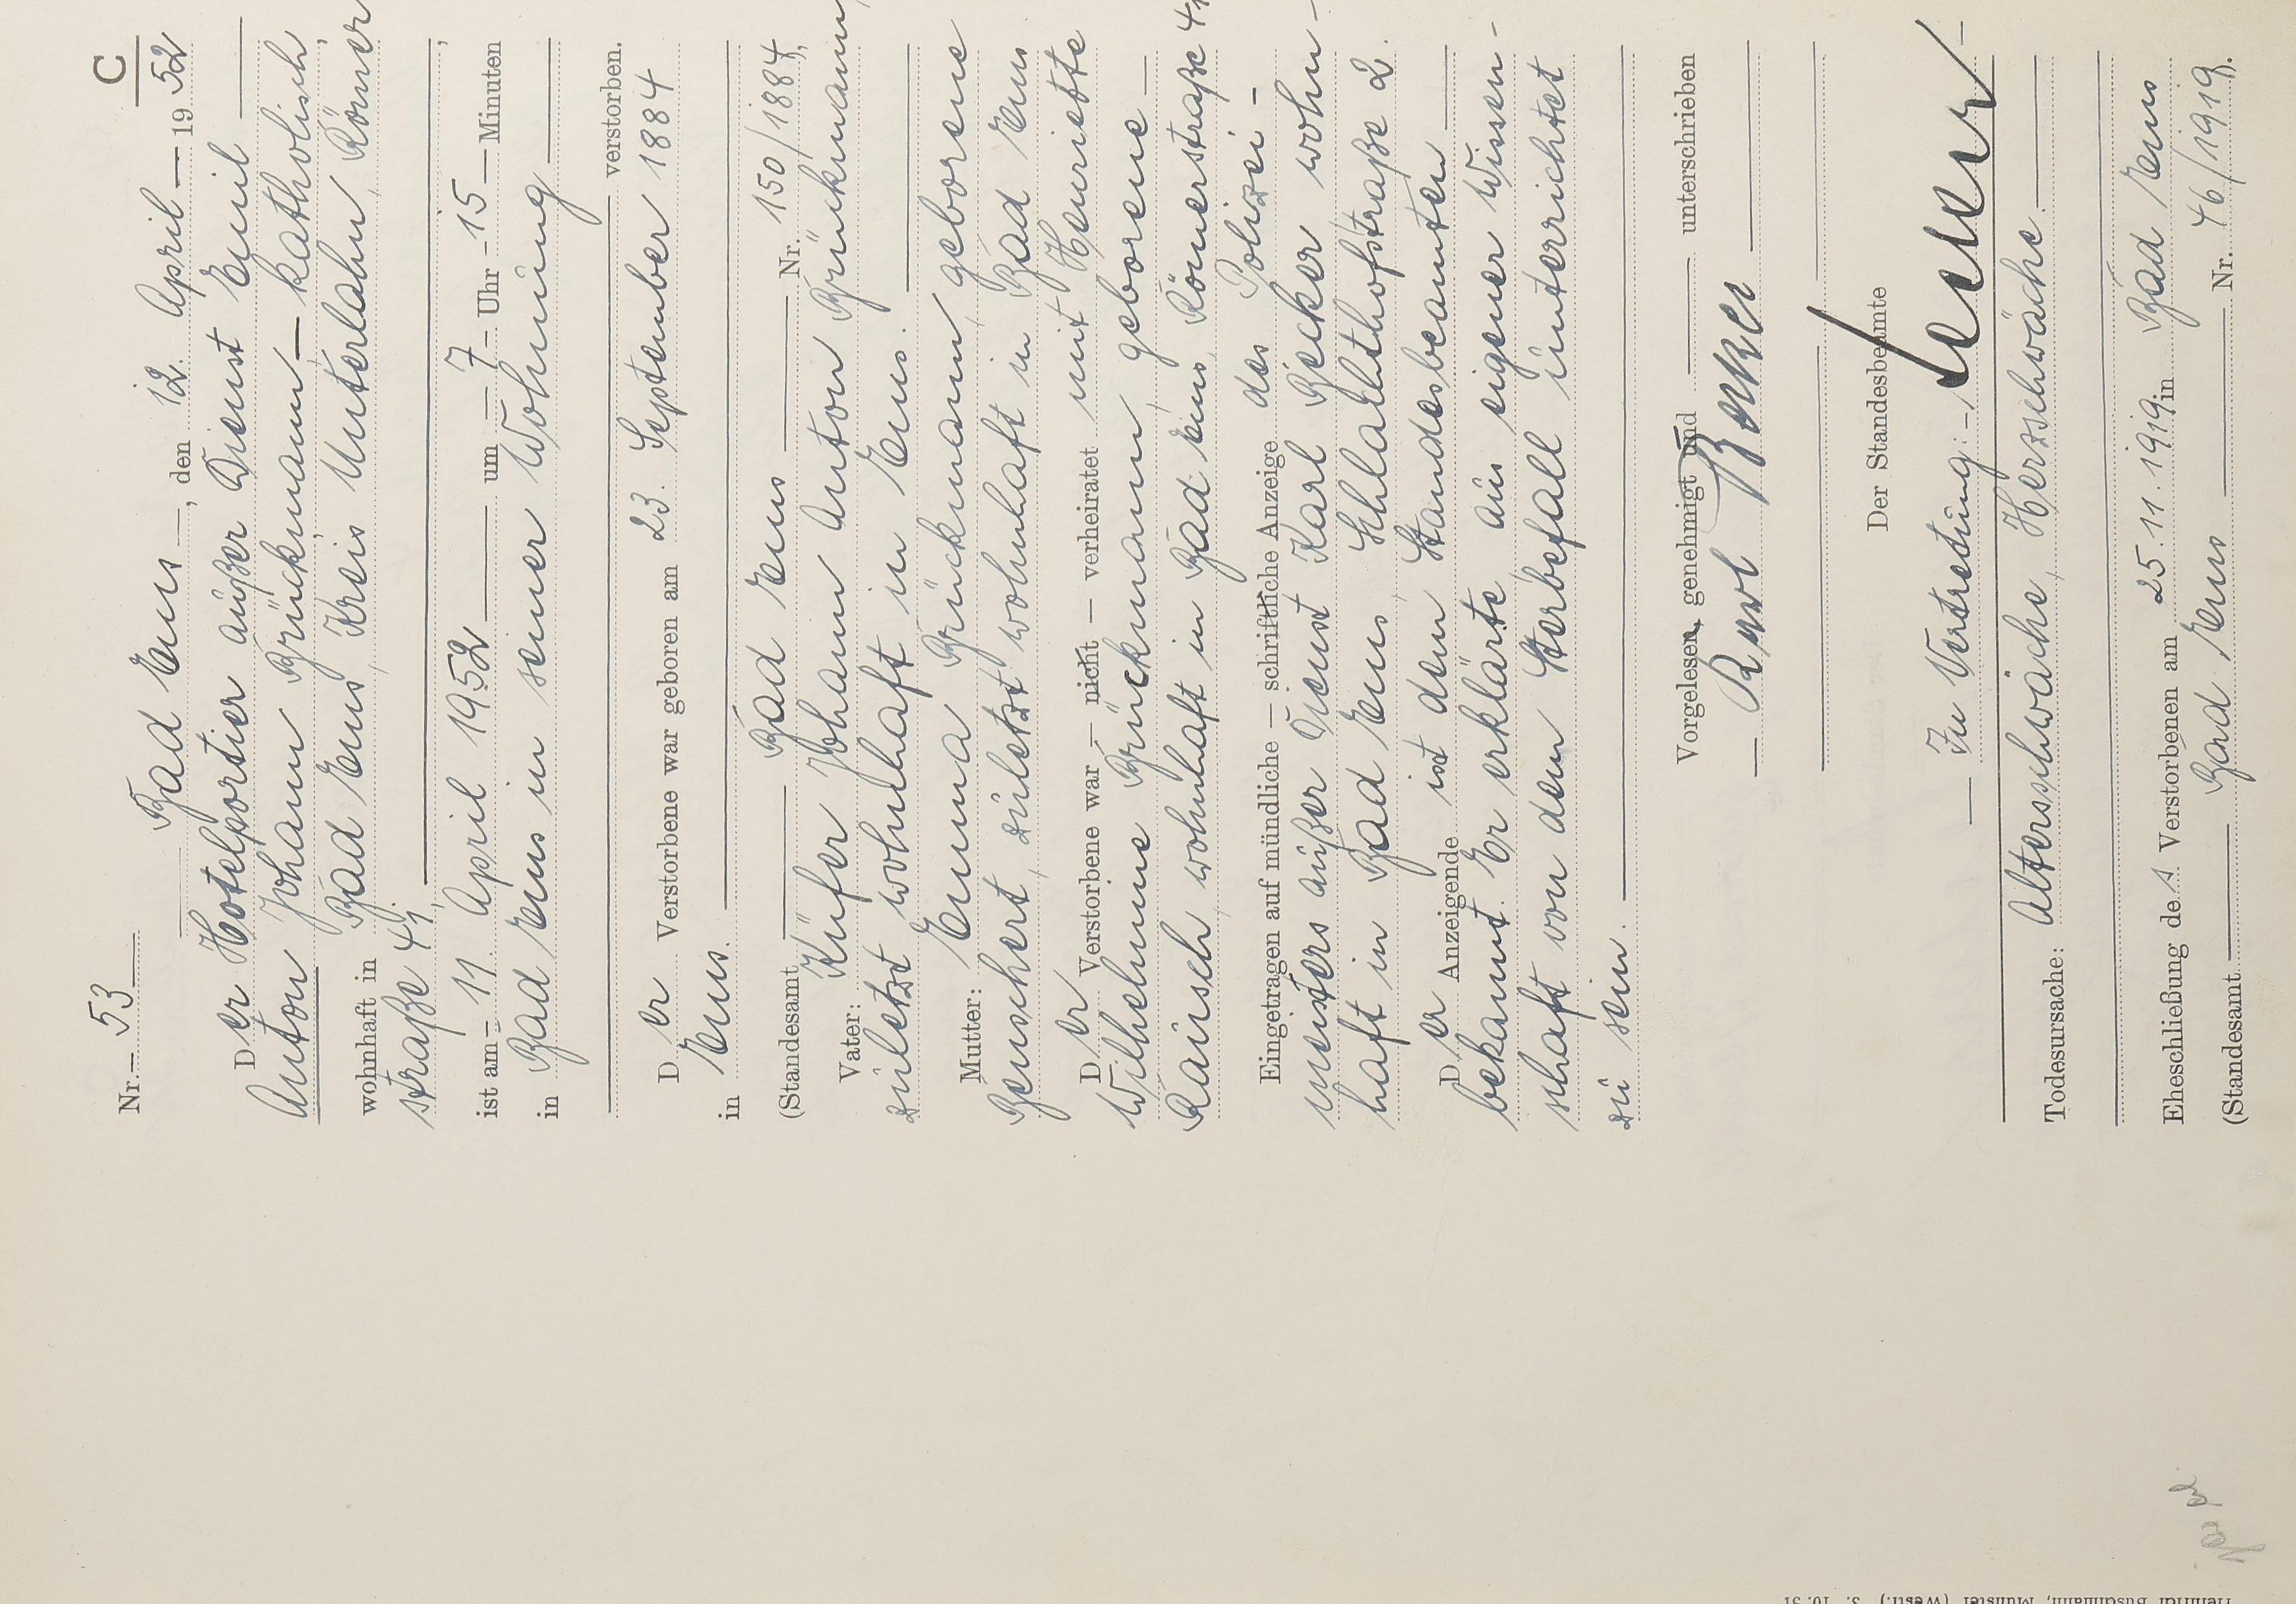 C
Nr. 53
Bad Ems —, den 12. April — 19 52
Der Hotelportier außer Dienst Emil
Anton Johann Brückmann — katholisch,
wohnhaft in Bad Ems, Kreis Unterlahn, Römer
straße 41,
ist am — 11. April 1952 — um — 7 — Uhr — 15 — Minuten
in Bad Ems in seiner Wohnung —
verstorben.
Der Verstorbene war geboren am 23. September 1884
in Ems.
(Standesamt — Bad Ems — Nr. 150/1884,
Vater: Küfer Johann Anton Brückmann,
zuletzt wohnhaft in Ems.
Mutter: Emma Brückmann, geborene
, zuletzt wohnhaft in Bad Ems
Der Verstorbene war — nicht — verheiratet mit Henriette
Wilhelmine Brückmann, geborene —
Rausch, wohnhaft in Bad Ems, Römerstraße 41
Eingetragen auf mündliche — schriftliche Anzeige des Polizei-
meisters außer Dienst Karl Becker, wohn-
haft in Bad Ems, Schlachthofstraße 2.
Der Anzeigende ist dem Standesbeamten —
bekannt. Er erklärte, aus eigener Wissen-
schaft von dem Sterbefall unterrichtet
zu sein.
Vorgelesen, genehmigt und — unterschrieben
— Karl Becker —
Der Standesbeamte
— In Vertretung: —
Todesursache: Altersschwäche, Herzschwäche. —
Eheschließung des Verstorbenen am 25.11.1919. in Bad Ems
(Standesamt — Bad Ems — Nr. 46/1919.
Heinrich Buschmann, Münster (Westf.) 3. 10.51